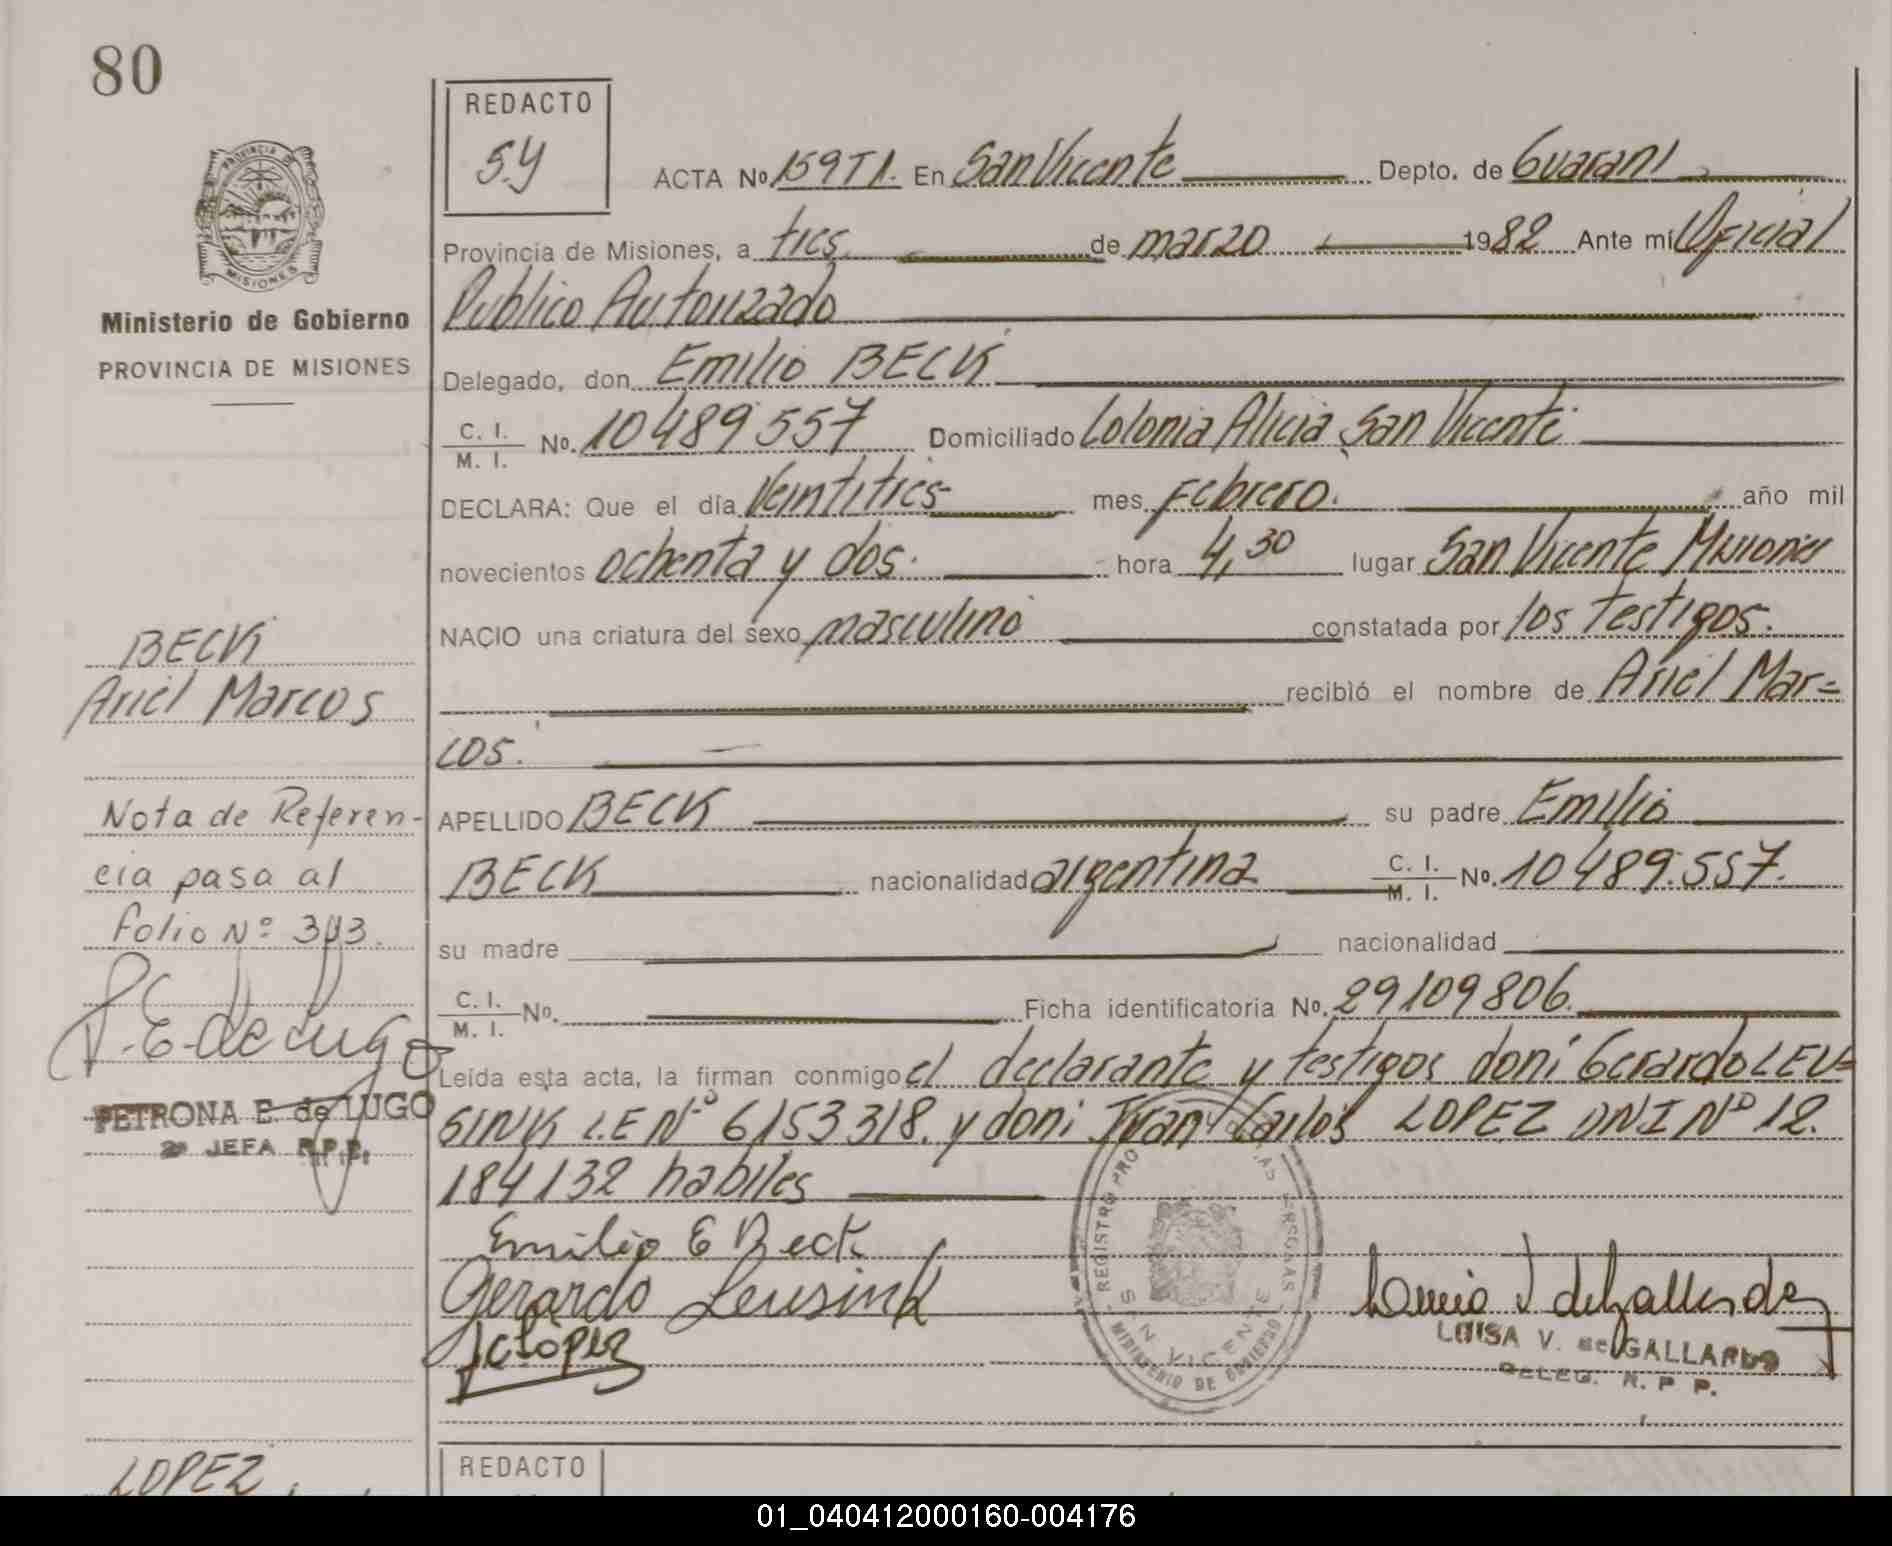 80
REDACTO
S.Y
ACTA No. 159 T I. En San Vicente Depto. de Guaraní
PROVINCIA DE
MISIONES
Provincia de Misiones, a tres de marzo 1982 Ante mí Oficial
Publico Autorizado
Ministerio de Gobierno
PROVINCIA DE MISIONES
Delegado, don Emilio BECK
C. I. M. I. No. 10489557 Domiciliado Colonia Alicia, San Vicente
DECLARA: Que el día Veintitres mes Febrero. año mil
novecientos ochenta y dos. hora 4,30 lugar San Vicente Misiones
NACIO una criatura del sexo masculino constatada por los testigos.
recibió el nombre de Ariel Mar=
cos.
APELLIDO BECK su padre Emilio
BECK nacionalidad argentina C. I. M. I. No. 10489.557.
su madre nacionalidad
C. I. M. I. No. Ficha identificatoria No. 29109806.
Leída esta acta, la firman conmigo el declarante y testigos don: Gerardo LEU=
SINK L.E Nº 6153318. y don: Juan Carlos LOPEZ DNI Nº 12.
184132 habiles
Emilio E Beck
Gerardo Leusink
JCLopez
REGISTRO PRO AS PERSONAS
SAN VICENTE
MINISTERIO DE GOBIERNO
Luisa V de Gallardo
LUISA V. de GALLARDO
DELEG. R. P. P.
BECK
Ariel Marcos
Nota de Referen-
cia pasa al
folio Nº 393.
P.E. de Lugo
PETRONA E. de LUGO
2ª JEFA R.P.P.
LOPEZ
REDACTO
01_040412000160-004176